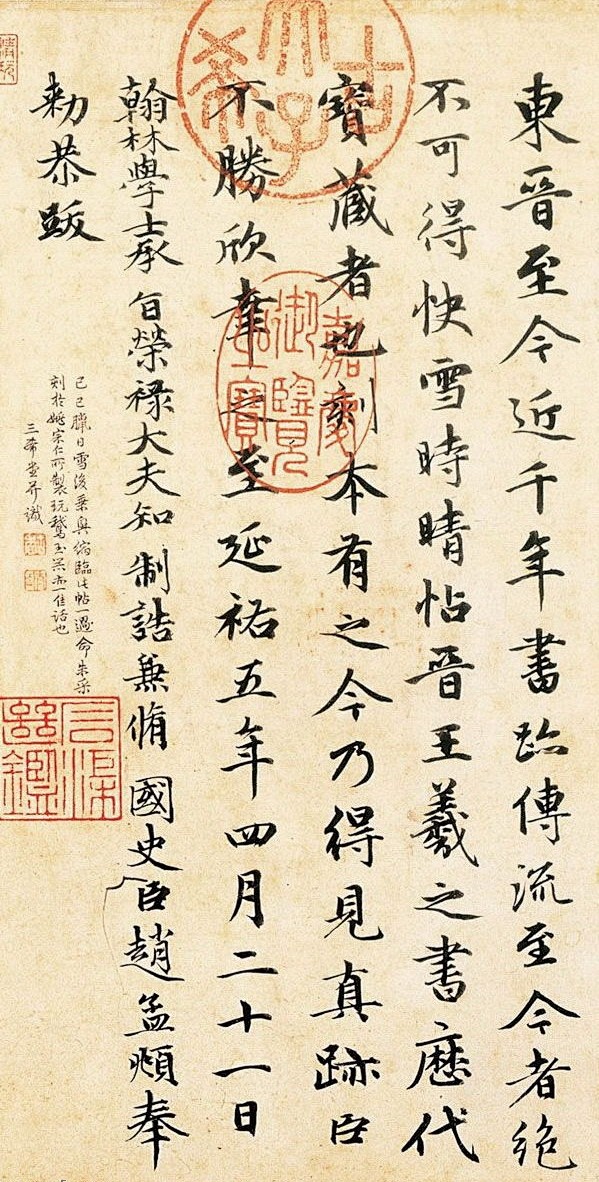 東晉至今近千年書跡傳流至今者絕
不可得快雪時晴帖晉王羲之書歷代
寶藏者也刻本有之今乃得見真跡臣
不勝欣幸之至延祐五年四月二十一日
翰林學士承旨榮祿大夫知制誥兼脩國史臣趙孟頫奉
勑恭跋
己巳臘日雪後乘興縮臨此帖一過命朱采
刻於姚宗仁所製玩鵝玉器亦一佳話也
三希堂并識
古希天子
嘉慶御覽之寶